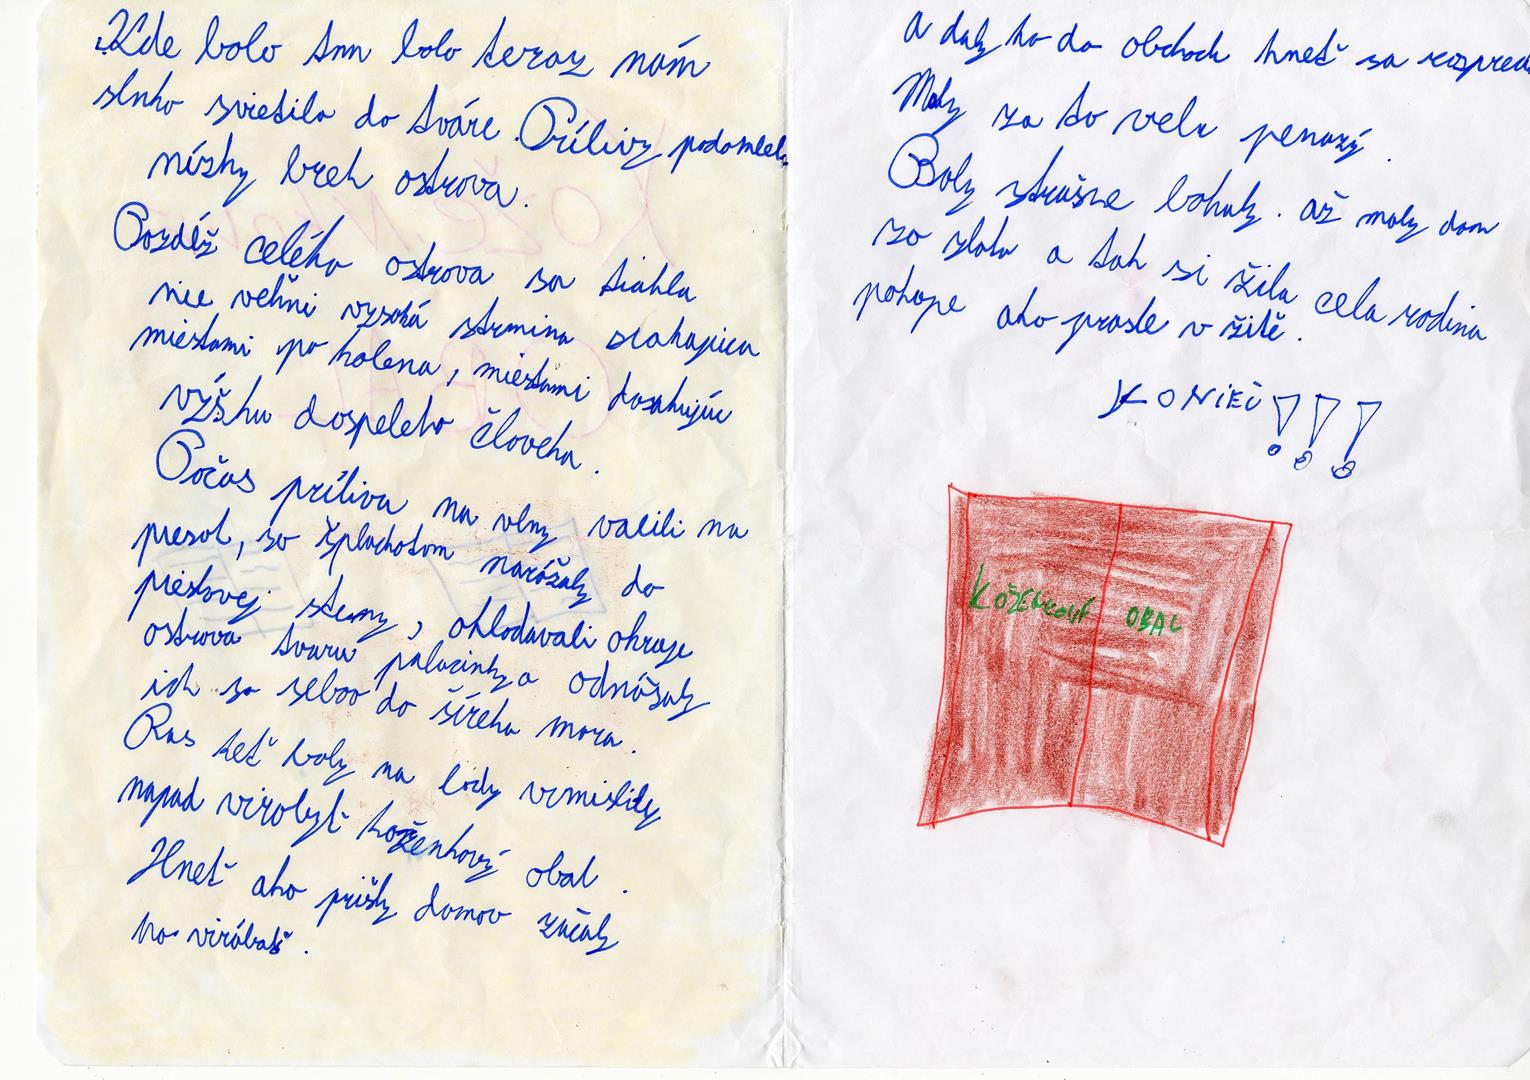 Kde bolo tam bolo teraz nám
slnko svietilo do tváre. Prílivy podomleli
nízky breh ostrova.
Pozdĺž celého ostrova sa tiahla
nie veľmi vysoká strmina siahajúca
miestami po kolena, miestami dosahujúc
výšku dospeleho človeka.
Počas prílivu na vlny valili na
piesok, so špluchotom narážaly do
piestovej steny, ohlodávali okraje
ostrova tvaru palacinky a odnášaly
ich so sebou do šíreho mora.
Ras keť boly na lody vimislely
napad virobyť koženkový obal.
Hneť ako prišly domov začaly
ho virábať.
a daly ho do obchodu hneť sa rozpredal
Maly za to velu penazý.
Boly strašne bohaty. až maly dom
zo zlata a tak si žila cela rodina
pokope ako prasle v žitě.
KONIEC!!!
KOŽENKOVÝ OBAL